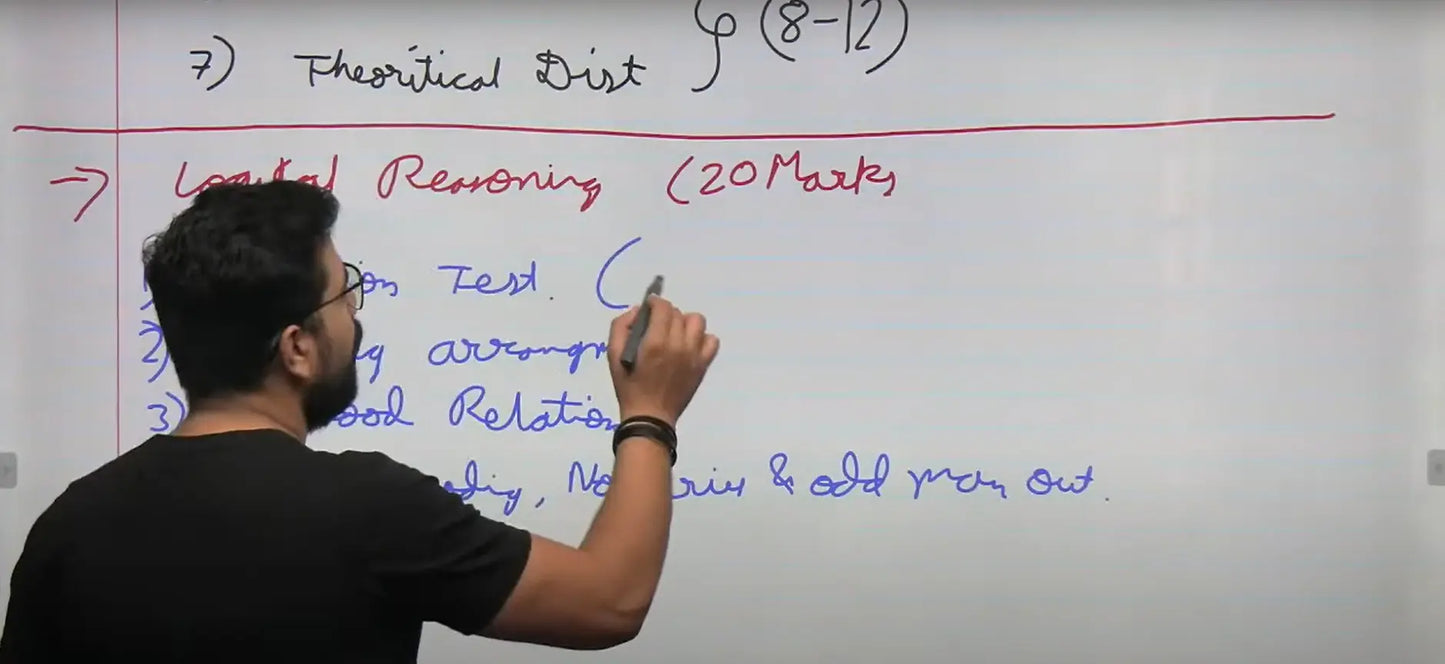 7) Theoritical Dist (8-12)
→ Logical Reasoning (20 Marks
Test. (
2) arrangm
3) Blood Relation
& odd man out.